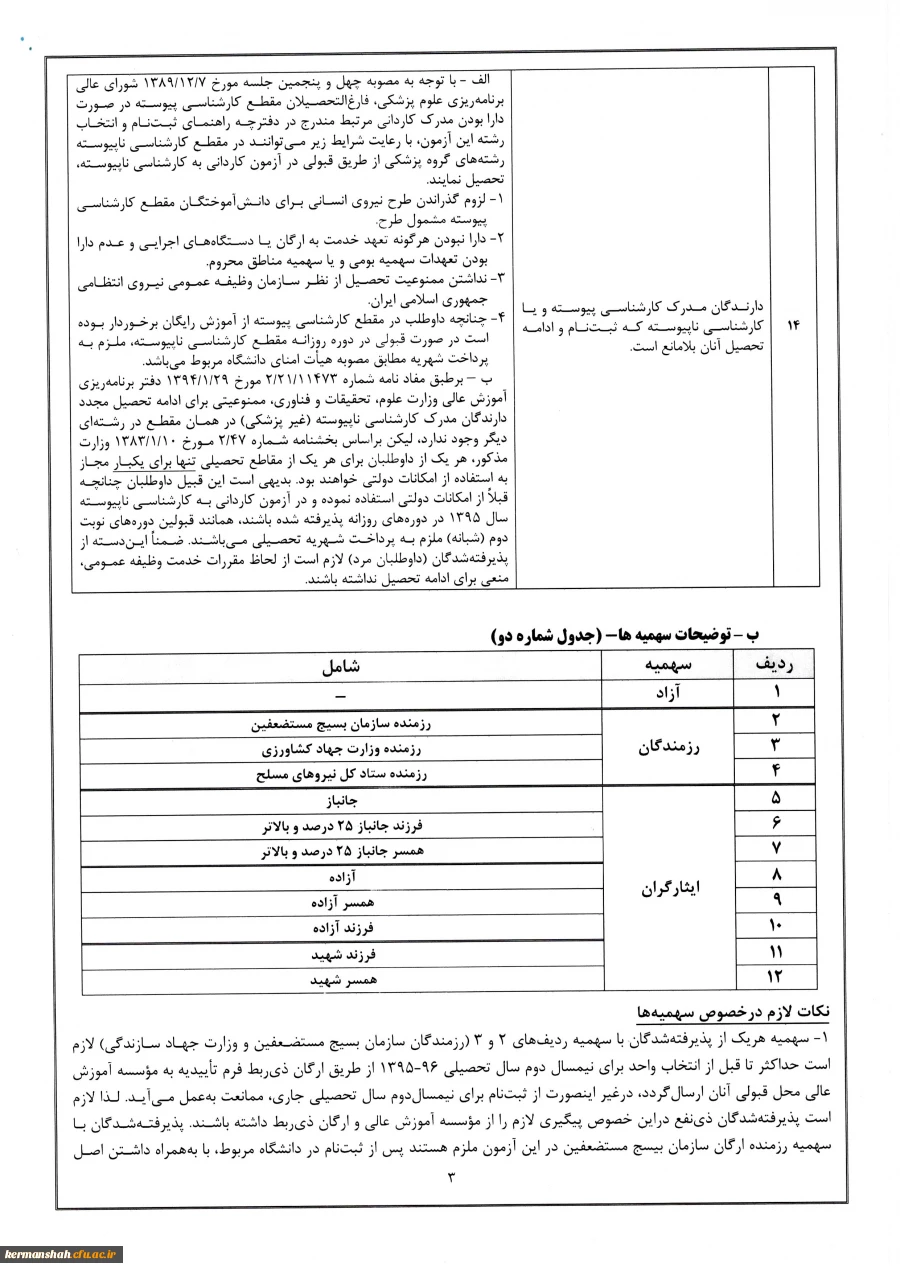 ۱۴
دارندگان مدرک کارشناسی پیوسته و یـا
کارشناسی ناپیوسته کـه ثبـت‌نـام و ادامـه
تحصیل آنان بلامانع است.
الف – با توجه به مصوبه چهل و پنجمین جلسه مورخ ۱۳۸۹/۱۲/۷ شورای عالی
برنامه‌ریزی علوم پزشکی، فارغ‌التحصیلان مقطع کارشناسـی پیوسـته در صـورت
دارا بودن مدرک کاردانی مرتبط مندرج در دفترچـه راهنمای ثبـت‌نـام و انتخـاب
رشته این آزمون، با رعایت شرایط زیر مـی‌تواننـد در مقطـع کارشناسـی ناپیوسـته
رشته‌های گروه پزشکـی از طریق قبولـی در آزمون کاردانـی به کارشناسـی ناپیوسـته،
تحصیل نمایند.
۱- لزوم گذراندن طرح نیروی انسانـی برای دانش‌آموختگـان مقطـع کارشناسـی
پیوسته مشمول طرح.
۲- دارا نبودن هرگونه تعهد خدمت به ارگان یـا دستگاه‌های اجرایی و عـدم دارا
بودن تعهدات سهمیه بومی و یـا سهمیه مناطق محروم.
۳- نداشتن ممنوعیت تحصیل از نظـر سـازمان وظیفـه عمومی نیـروی انتظـامی
جمهوری اسلامی ایران.
۴- چنانچه داوطلب در مقطع کارشناسی پیوسته از آموزش رایگان برخـوردار بـوده
است در صورت قبولـی در دوره روزانـه مقطـع کارشناسـی ناپیوسـته، ملـزم بـه
پرداخت شهریه مطابق مصوبه هیأت امنای دانشگاه مربوط می‌باشد.
ب – برطبق مفاد نامه شماره ۲/۲۱/۱۱۴۷۳ مورخ ۱۳۹۴/۱/۲۹ دفتر برنامه‌ریزی
آموزش عالی وزارت علوم، تحقیقات و فناوری، ممنوعیتی برای ادامه تحصیل مجدد
دارندگان مدرک کارشناسـی ناپیوسته (غیر پزشکی) در همـان مقطـع در رشته‌ای
دیگر وجود ندارد، لیکن براساس بخشنامه شماره ۲/۴۷ مـورخ ۱۳۸۳/۱/۱۰ وزارت
مذکور، هر یک از داوطلبان برای هر یک از مقاطع تحصیلی تنها برای یکبـار مجـاز
به استفاده از امکانات دولتی خواهند بود. بدیهی است این قبیل داوطلبان چنانچـه
قبلاً از امکانات دولتی استفاده نموده و در آزمون کاردانی بـه کارشناسـی ناپیوسته
سال ۱۳۹۵ در دوره‌های روزانه پذیرفته شده باشند، همانند قبولین دوره‌های نوبت
دوم (شبانه) ملزم به پرداخت شهریه تحصیلی مـی‌باشـند. ضمنـاً ایـن‌دسـته از
پذیرفته‌شدگان (داوطلبان مرد) لازم است از لحاظ مقررات خدمت وظیفه عمومی،
منعی برای ادامه تحصیل نداشته باشند.
ب – توضیحات سهمیه ها– (جدول شماره دو)
ردیف سهمیه شامل
۱ آزاد –
۲ رزمنده سازمان بسیج مستضعفین
۳ رزمندگان رزمنده وزارت جهاد کشاورزی
۴ رزمنده ستاد کل نیروهای مسلح
۵ جانباز
۶ فرزند جانباز ۲۵ درصد و بالاتر
۷ همسر جانباز ۲۵ درصد و بالاتر
۸ ایثارگران آزاده
۹ همسر آزاده
۱۰ فرزند آزاده
۱۱ فرزند شهید
۱۲ همسر شهید
نکات لازم درخصوص سهمیه‌ها
۱- سهمیه هریک از پذیرفته‌شدگان با سهمیه ردیف‌های ۲ و ۳ (رزمندگان سازمان بسیج مستـضعفین و وزارت جهـاد سـازندگی) لازم
است حداکثر تا قبل از انتخاب واحد برای نیمسال دوم سال تحصیلی ۹۶-۱۳۹۵ از طریق ارگان ذی‌ربط فرم تأییدیه به مؤسسه آموزش
عالی محل قبولی آنان ارسال‌گردد، درغیر اینصورت از ثبت‌نام برای نیمسال‌دوم سال تحصیلی جاری، ممانعت به‌عمل مـی‌آیـد. لـذا لازم
است پذیرفته‌شدگان ذی‌نفع دراین خصوص پیگیری لازم را از مؤسسه آموزش عالی و ارگان ذی‌ربط داشته باشـند. پذیرفتـه‌شـدگان بـا
سهمیه رزمنده ارگان سازمان بیسج مستضعفین در این آزمون ملزم هستند پس از ثبت‌نام در دانشگاه مربوط، با به‌همراه داشـتن اصل
۳
kermanshah.cfu.ac.ir